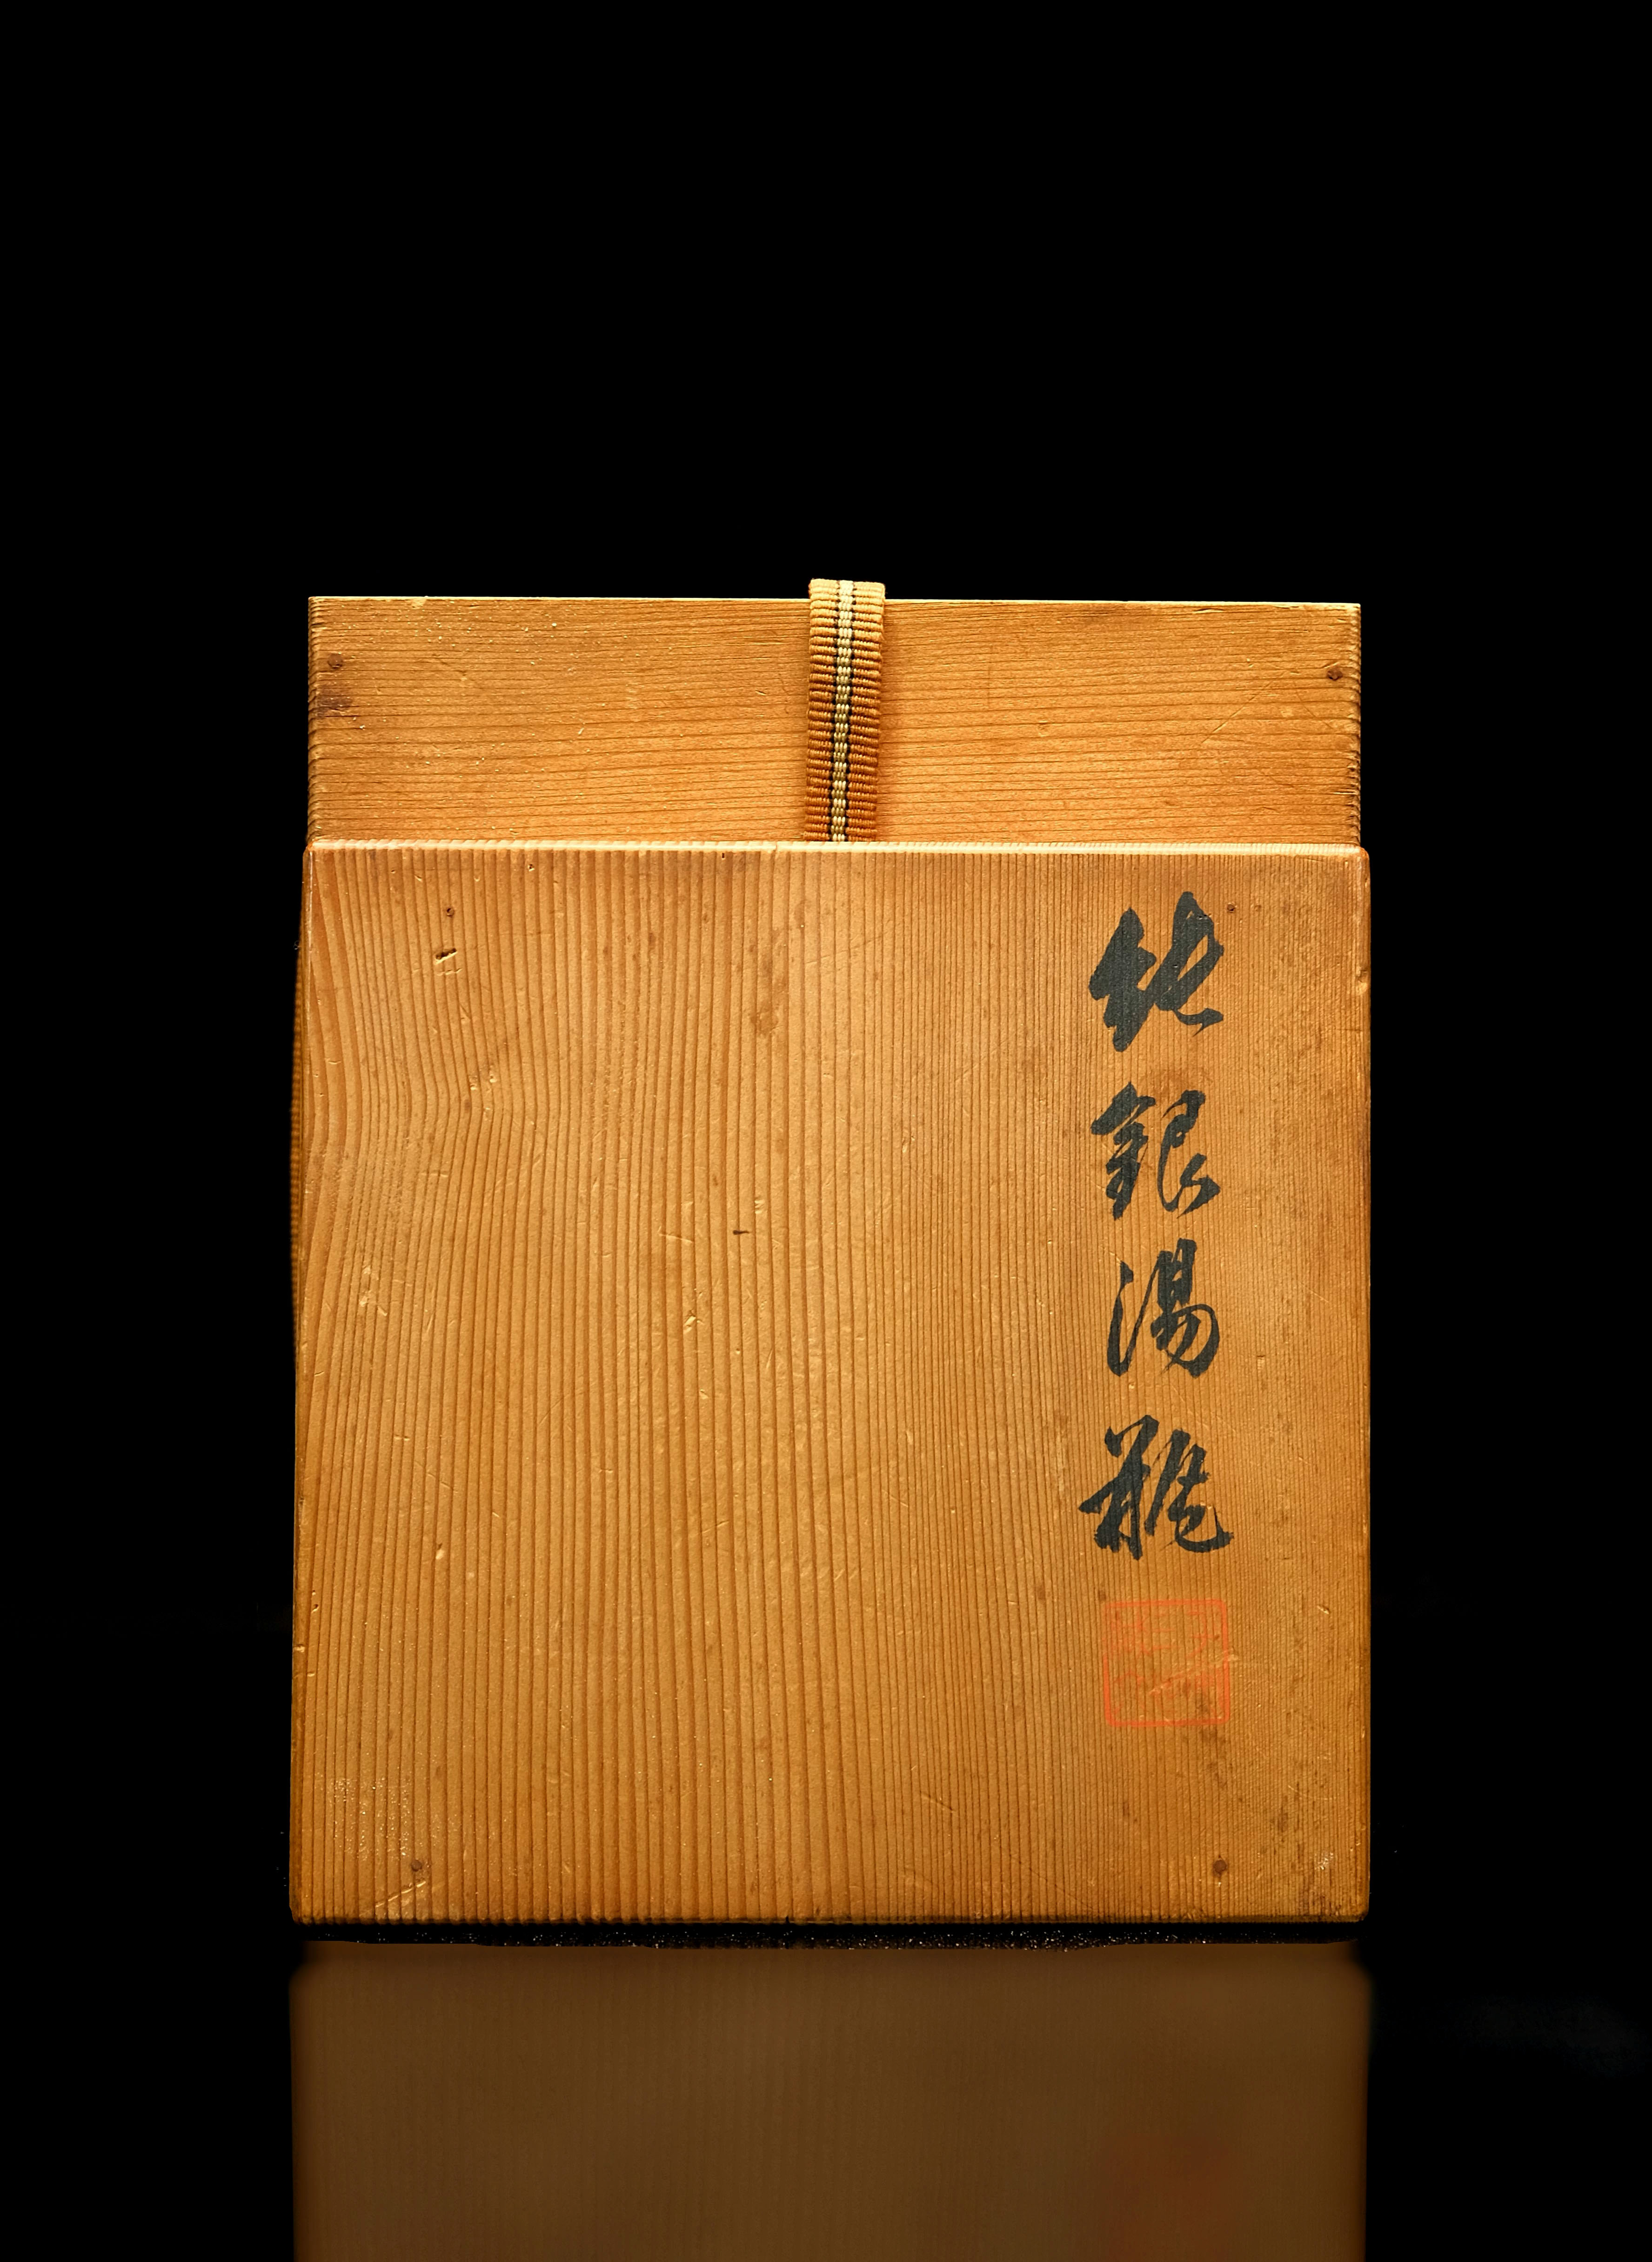 純銀湯瓶